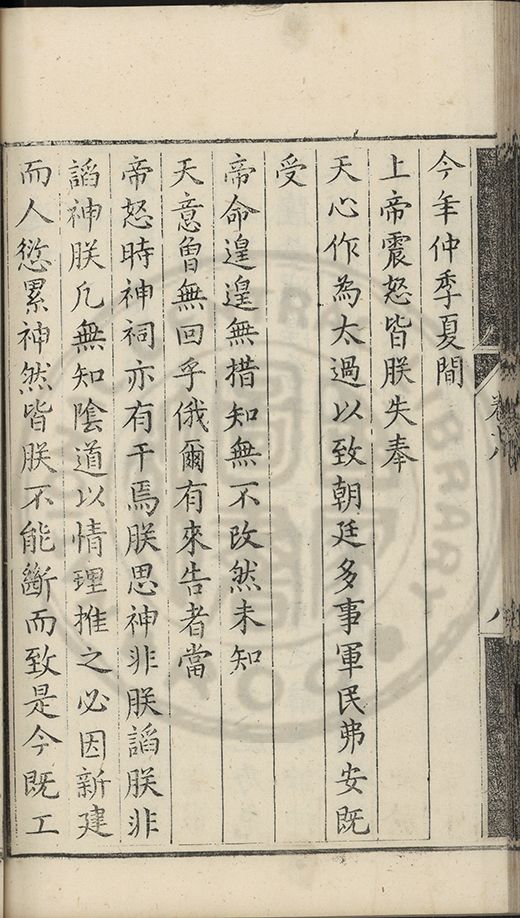 今年仲季夏間
上帝震怒皆朕失奉
天心作為太過以致朝廷多事軍民弗安既
受
帝命遑遑無措知無不改然未知
天意曾無回乎俄爾有來告者當
帝怒時神祠亦有干焉朕思神非朕謟朕非
謟神朕凡無知陰道以情理推之必因新建
而人愆累神然皆朕不能斷而致是今既工